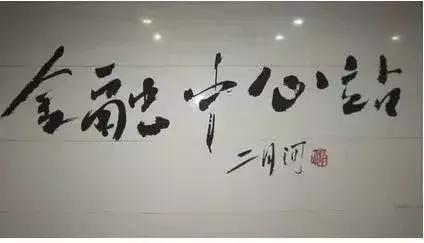 金融中心站
二月河